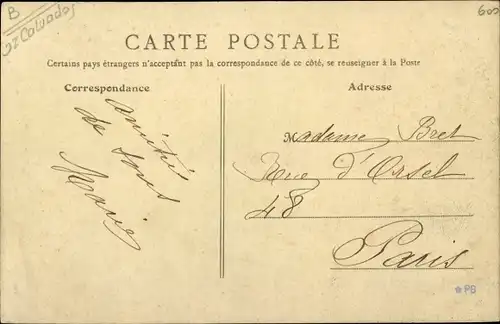 B
Calvados
600
CARTE POSTALE
Certains pays étrangers n'acceptent pas la correspondance de ce côté, se renseigner à la Poste
Correspondance
Adresse
amitié
de tous
Marie
Madame Bret
Rue d'Orsel
48
Paris
PB